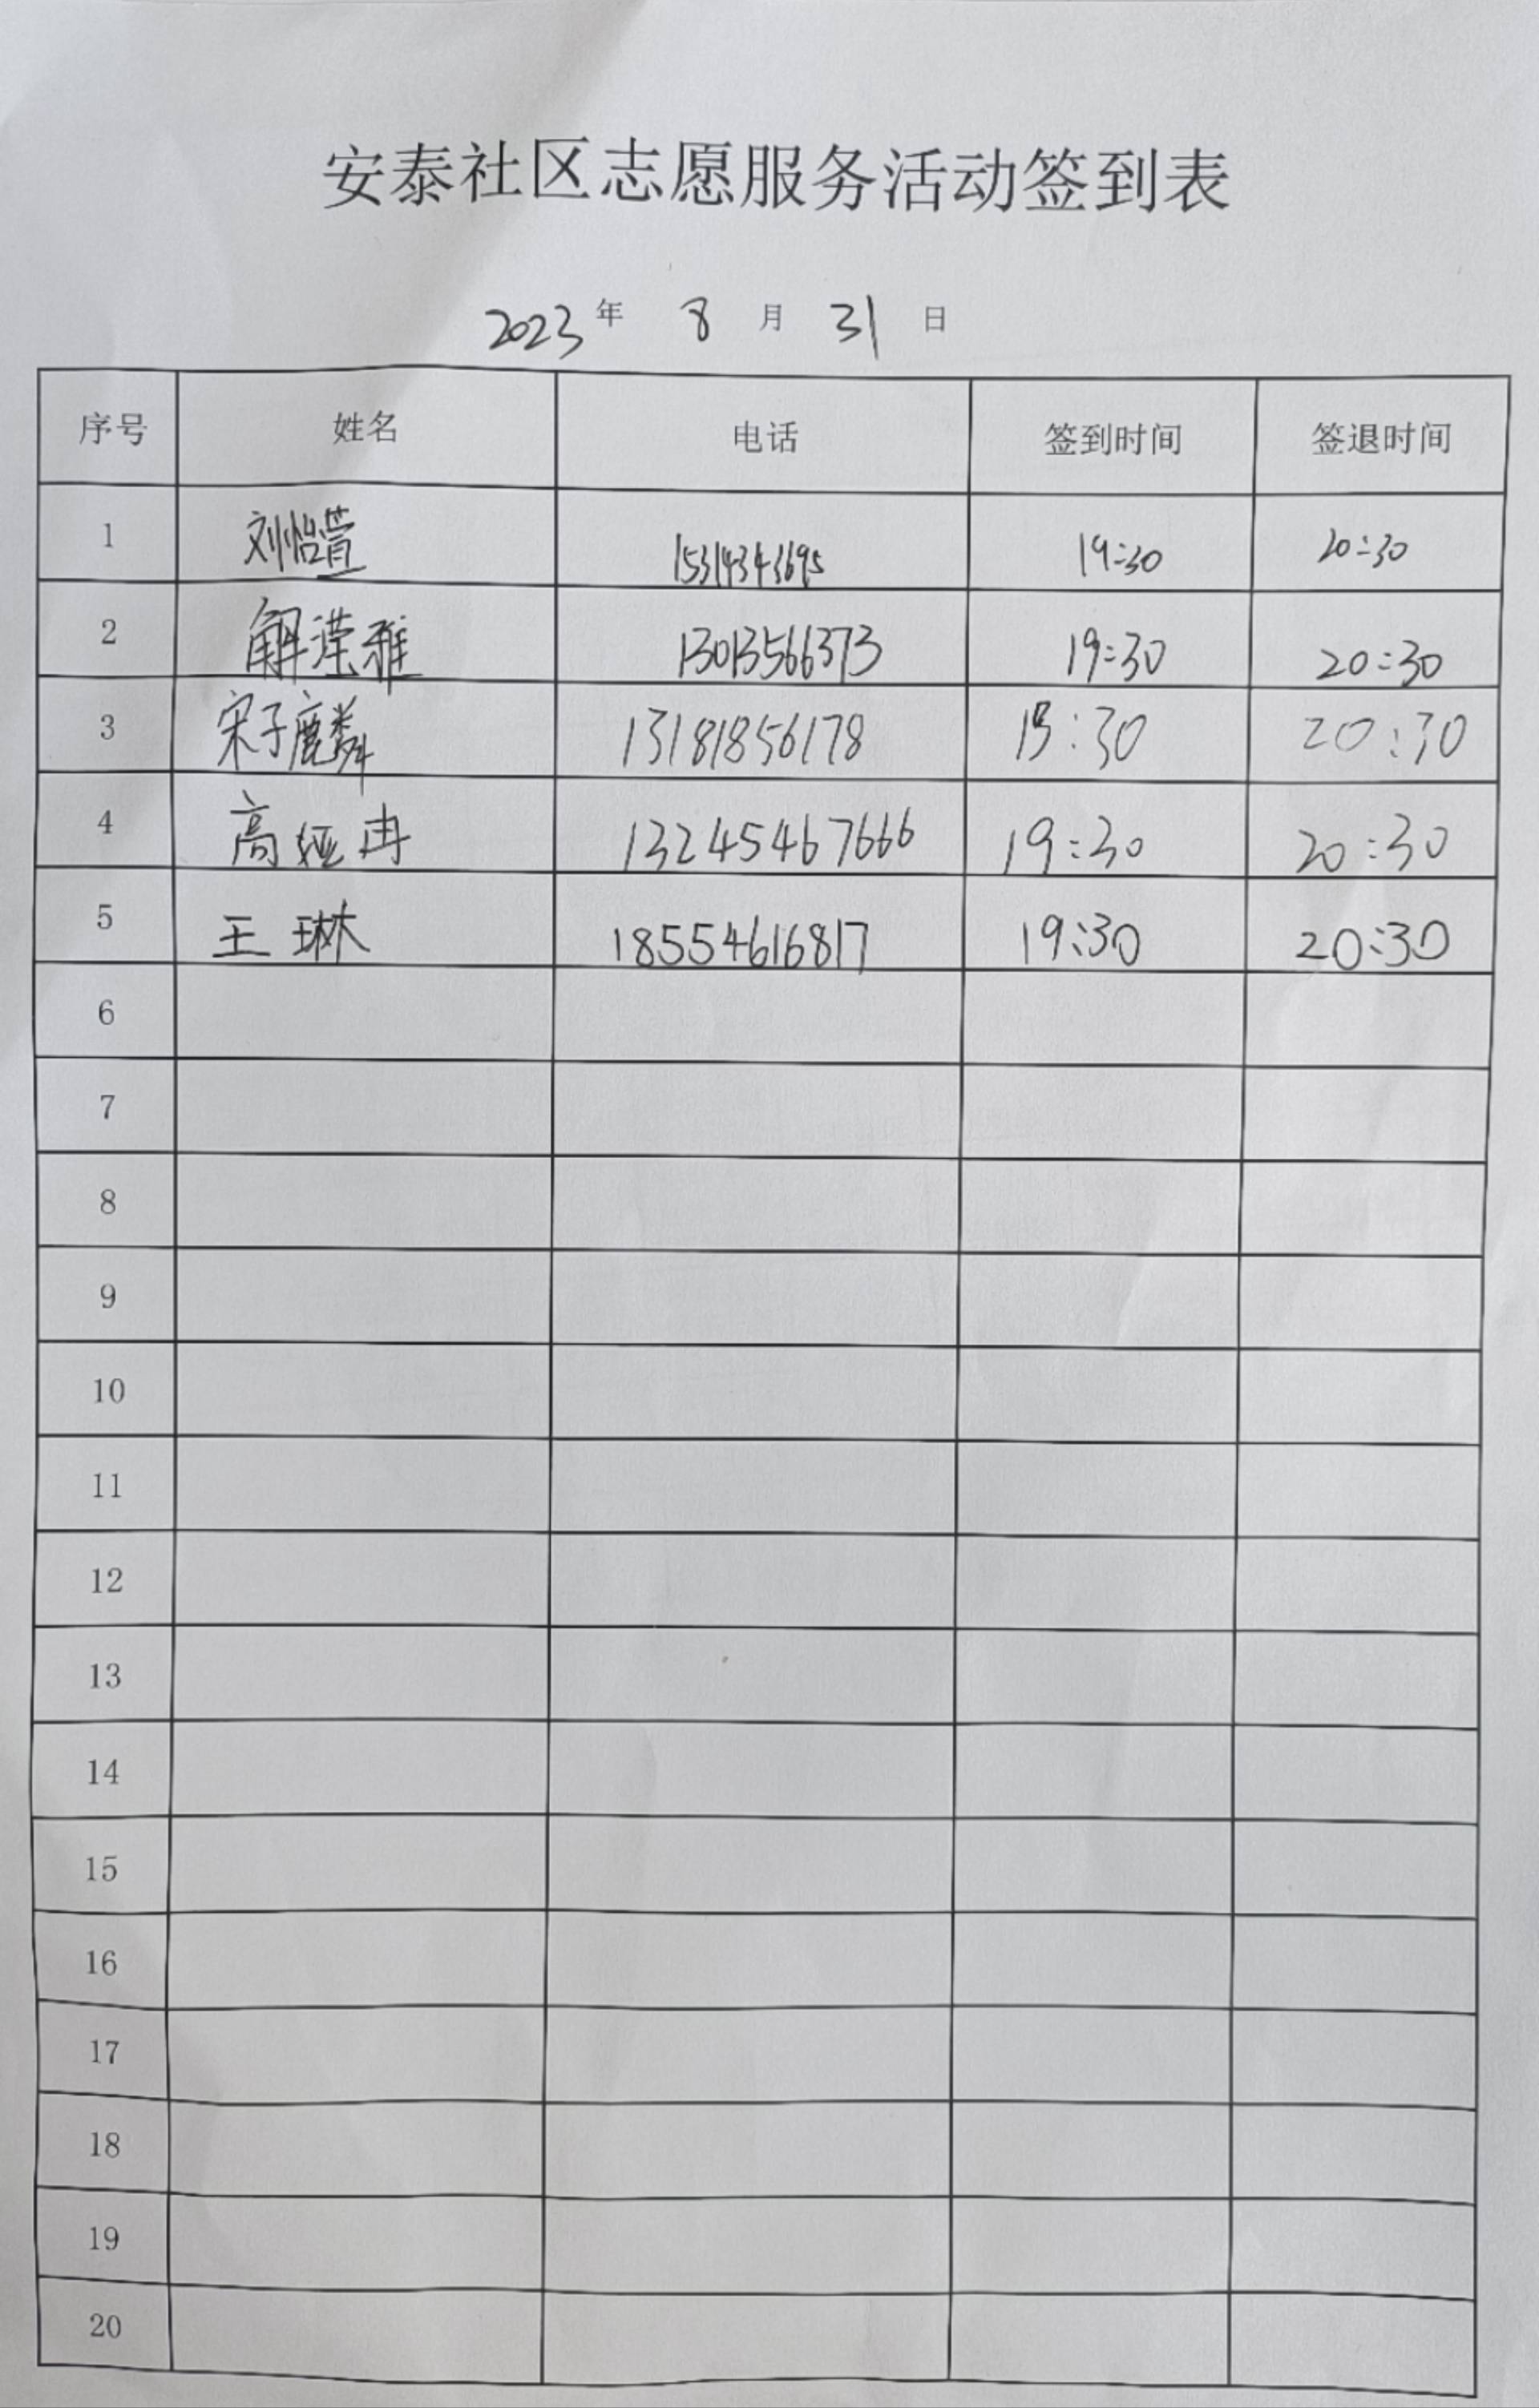 安泰社区志愿服务活动签到表
2023 年 8 月 31 日
序号 姓名 电话 签到时间 签退时间
1 刘怡萱 15314343695 19:30 20:30
2 解滢雅 13013566373 19:30 20:30
3 宋子麟 13181856178 19:30 20:30
4 高娅冉 13245467666 19:30 20:30
5 王琳 18554616817 19:30 20:30
6
7
8
9
10
11
12
13
14
15
16
17
18
19
20